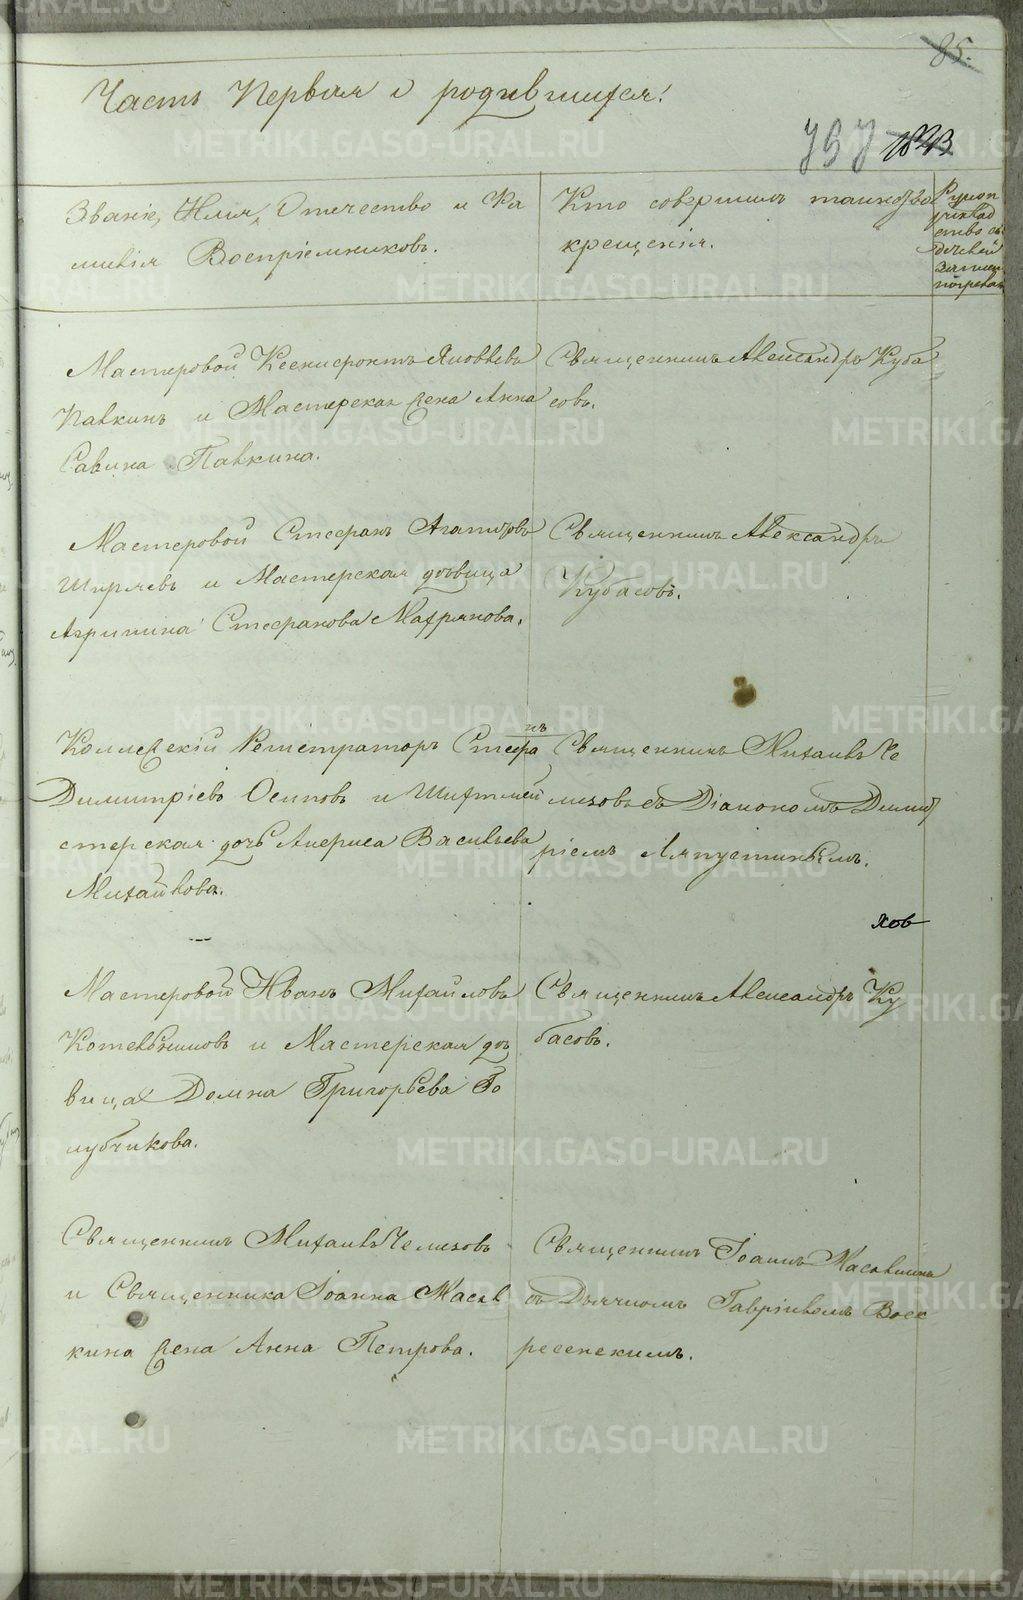 85.
Часть Первая о родившихся.
797 1823
Званіе, Имя, Отечество и Фа
милія Воспріемниковъ.
Кто совершилъ таинство
крещенія.
Рукоп
рикλад
ство св
дѣтелей
записи
по желан
Мастеровой Ксенофонтъ Яковлевъ
Павкинъ и Мастерская жена Анна
Савина Павкина.
Священникъ Александръ Куба
совъ.
Мастеровой Стефанъ Агаповъ
Ширяевъ и Мастерская дѣвица
Агрипина Стефанова Мафрянова.
Священникъ Александръ
Кубасовъ.
Коллежскій Регистраторъ Стефа
нъ
Димитріевъ Осиповъ и Шихтмей
стерская дочь Лариса Васильева
Михайлова.
Священникъ Михаилъ Че
мезовъ съ Діакономъ Димит
ріемъ Ляпустинымъ.
хов
Мастеровой Иванъ Михайловъ
Котельниковъ и Мастерская дѣ
вица Домна Григорьева Го
лубчикова.
Священникъ Александръ Ку
басовъ.
Священникъ Михаилъ Чемезовъ
и Священника Іоанна Масал
кина жена Анна Петрова.
Священникъ Іоаннъ Масалкинъ
съ Дьячкомъ Гавріиломъ Воск
ресенскимъ.
METRIKI.GASO-URAL.RU